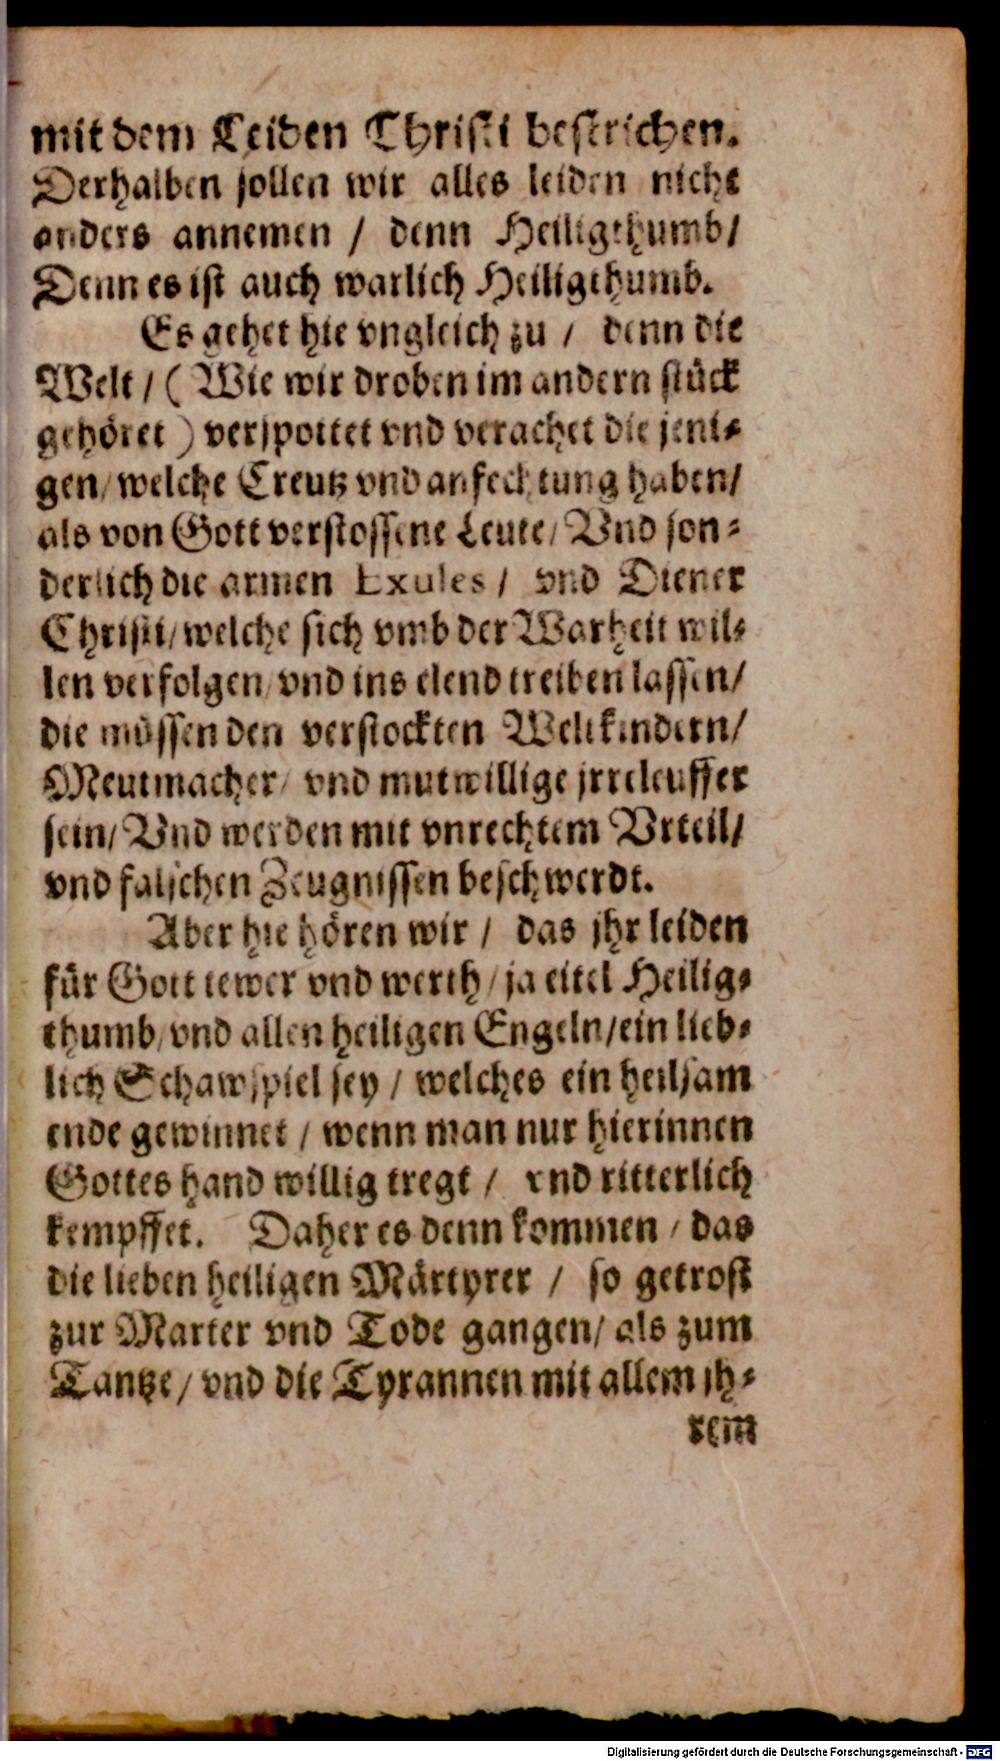 mit dem Leiden Christi bestrichen.
Derhalben sollen wir alles leiden nicht
anders annemen / denn Heiligthumb /
Denn es ist auch warlich Heiligthumb.
Es gehet hie vngleich zu / denn die
Welt / ( Wie wir droben im andern stück
gehöret ) verspottet vnd verachet die jeni-
gen / welche Creutz vnd anfechtung haben /
als von Gott verstossene Leute / Vnd son-
derlich die armen Exules / vnd Diener
Christi / welche sich vmb der Warheit wil-
len verfolgen / vnd ins elend treiben lassen /
die müssen den verstockten Weltkindern /
Meutmacher / vnd mutwillige jrreleuffer
sein / Vnd werden mit vnrechtem Vrteil /
vnd falschen Zeugnissen beschwerdt.
Aber hie hören wir / das jhr leiden
für Gott tewer vnd werth / ja eitel Heilig-
thumb / vnd allen heiligen Engeln / ein lieb-
lich Schawspiel sey / welches ein heilsam
ende gewinnet / wenn man nur hierinnen
Gottes hand willig tregt / vnd ritterlich
kempffet. Daher es denn kommen / das
die lieben heiligen Märtyrer / so getrost
zur Marter vnd Tode gangen / als zum
Tantze / vnd die Tyrannen mit allem jh-
rem
Digitalisierung gefördert durch die Deutsche Forschungsgemeinschaft - DFG